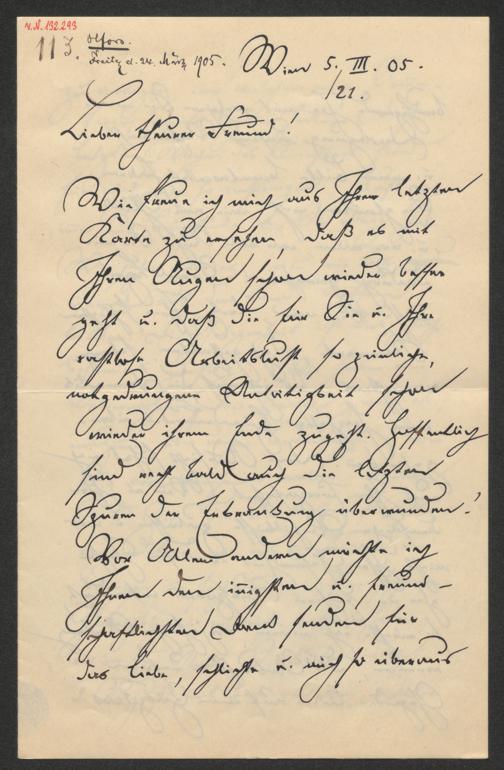 N.N. 132.293
113.
Freitag d. 24. März 1905.
Wien 5. III. 05.
/21.
Lieber theurer Freund!
Wie freue ich mich aus Ihrer letzten
Karte zu ersehen, daß es mit
Ihren Augen schon wieder besser
geht u. daß die für Sie u. Ihre
rastlose Arbeitslust so peinliche,
notgedrungene Untätigkeit schon
wieder ihrem Ende zugeht. Hoffentlich
sind recht bald auch die letzten
Spuren der Erkrankung überwunden!
Vor Allem andern möchte ich
Ihnen den innigsten u. freund-
schaftlichsten Dank senden für
das liebe, schlichte u. mich so überaus